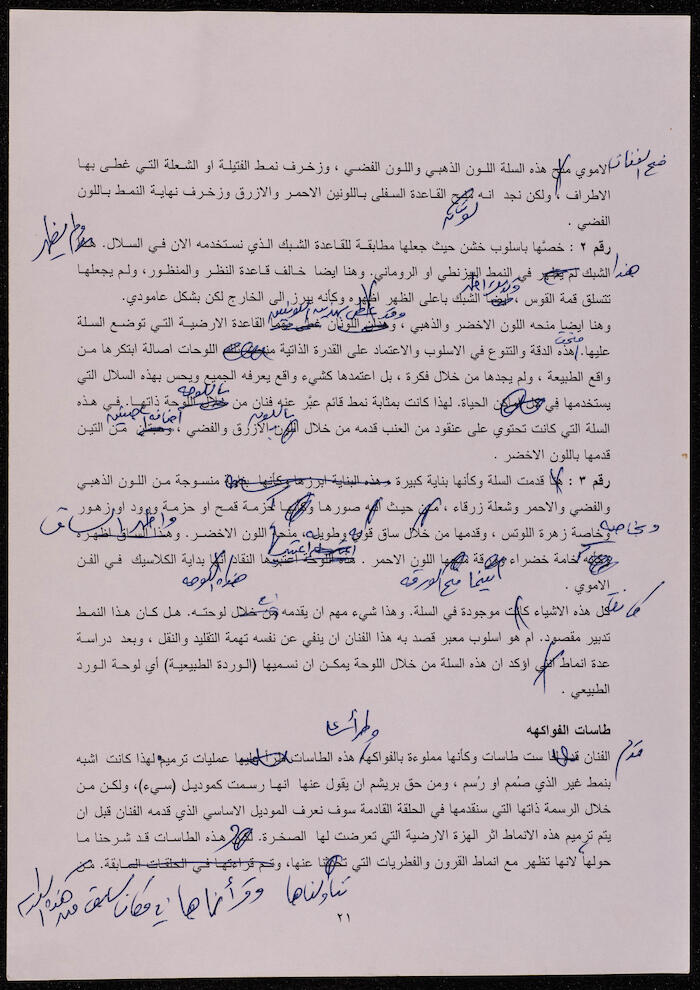 منح الفنان
الاموي منح هذه السلة اللون الذهبي واللون الفضي ، وزخرف نمط الفتيلة او الشعلة التي غطى بها
الاطراف ، ولكن نجد انه منح القاعدة السفلى باللونين الاحمر والازرق وزخرف نهاية النمط باللون
لونه
الفضي .
رقم ٢ : خصّها باسلوب خشن حيث جعلها مطابقة للقاعدة الشبك الذي نستخدمه الان في السلال. هذا
ولم يظهر
هذا
الشبك لم يظهر في النمط البيزنطي او الروماني. وهنا ايضا خالف قاعدة النظر والمنظور، ولم يجعلها
تتسلق قمة القوس ، الشبك باعلى الظهر اظهره وكأنه يبرز الى الخارج لكن بشكل عامودي.
وهنا ايضا منحه اللون الاخضر والذهبي ، وهذان اللونان غطى بهما القاعدة الارضية التي توضع السلة
عليها. هذه الدقة والتنوع في الاسلوب والاعتماد على القدرة الذاتية اللوحات اصالة ابتكرها من
واقع الطبيعة ، ولم يجدها من خلال فكرة ، بل اعتمدها كشيء واقع يعرفه الجميع ويحس بهذه السلال التي
يستخدمها في الحياة. لهذا كانت بمثابة نمط قائم عبّر عنه فنان من خلال اللوحة ذاتها. في هذه
باللوحه
السلة التي كانت تحتوي على عنقود من العنب قدمه من خلال اللون الازرق والفضي ، من التين
باللونه
قدمها باللون الاخضر .
رقم ٣ : هنا قدمت السلة وكأنها بناية كبيرة ، هذه البناية ابرزها وكأنها بناية منسوجة من اللون الذهبي
والفضي والاحمر وشعلة زرقاء ، من حيث انه صورها وكأنها حزمة قمح او حزمة ورود اوزهور
واظهر الساق
وبخاصه
وخاصة زهرة اللوتس ، وقدمها من خلال ساق قوية وطويلة، منحها اللون الاخضر. وهذا الساق اظهره
خامة خضراء ورقة منحها اللون الاحمر . هذه اللوحة اعتبرها النقاد انها بداية الكلاسيك في الفن
هذه اللوحه
الاموي .
كانت
كل هذه الاشياء كانت موجودة في السلة. وهذا شيء مهم ان يقدمه من خلال لوحته. هل كان هذا النمط
تدبير مقصود. ام هو اسلوب معبر قصد به هذا الفنان ان ينفي عن نفسه تهمة التقليد والنقل ، وبعد دراسة
عدة انماط التي اؤكد ان هذه السلة من خلال اللوحة يمكن ان نسميها (الوردة الطبيعية) أي لوحة الورد
الطبيعي .
طاسات الفواكهه
قدّم
الفنان قدم لنا ست طاسات وكأنها مملوءة بالفواكهة هذه الطاسات طرأ عليها عمليات ترميم لهذا كانت اشبه
بنمط غير الذي صُمم او رُسم ، ومن حق بريشم ان يقول عنها انها رسمت كموديل (سيء)، ولكن من
خلال الرسمة ذاتها التي سنقدمها في الحلقة القادمة سوف نعرف الموديل الاساسي الذي قدمه الفنان قبل ان
يتم ترميم هذه الانماط اثر الهزة الارضية التي تعرضت لها الصخرة. هذه الطاسات قد شرحنا ما
حولها لانها تظهر مع انماط القرون والفطريات التي تحدثنا عنها، وتم قراءتها في الحلقات السابقة. من
تناولناها وقرأناها في مكان سابق من هذه الدراسه
٢١